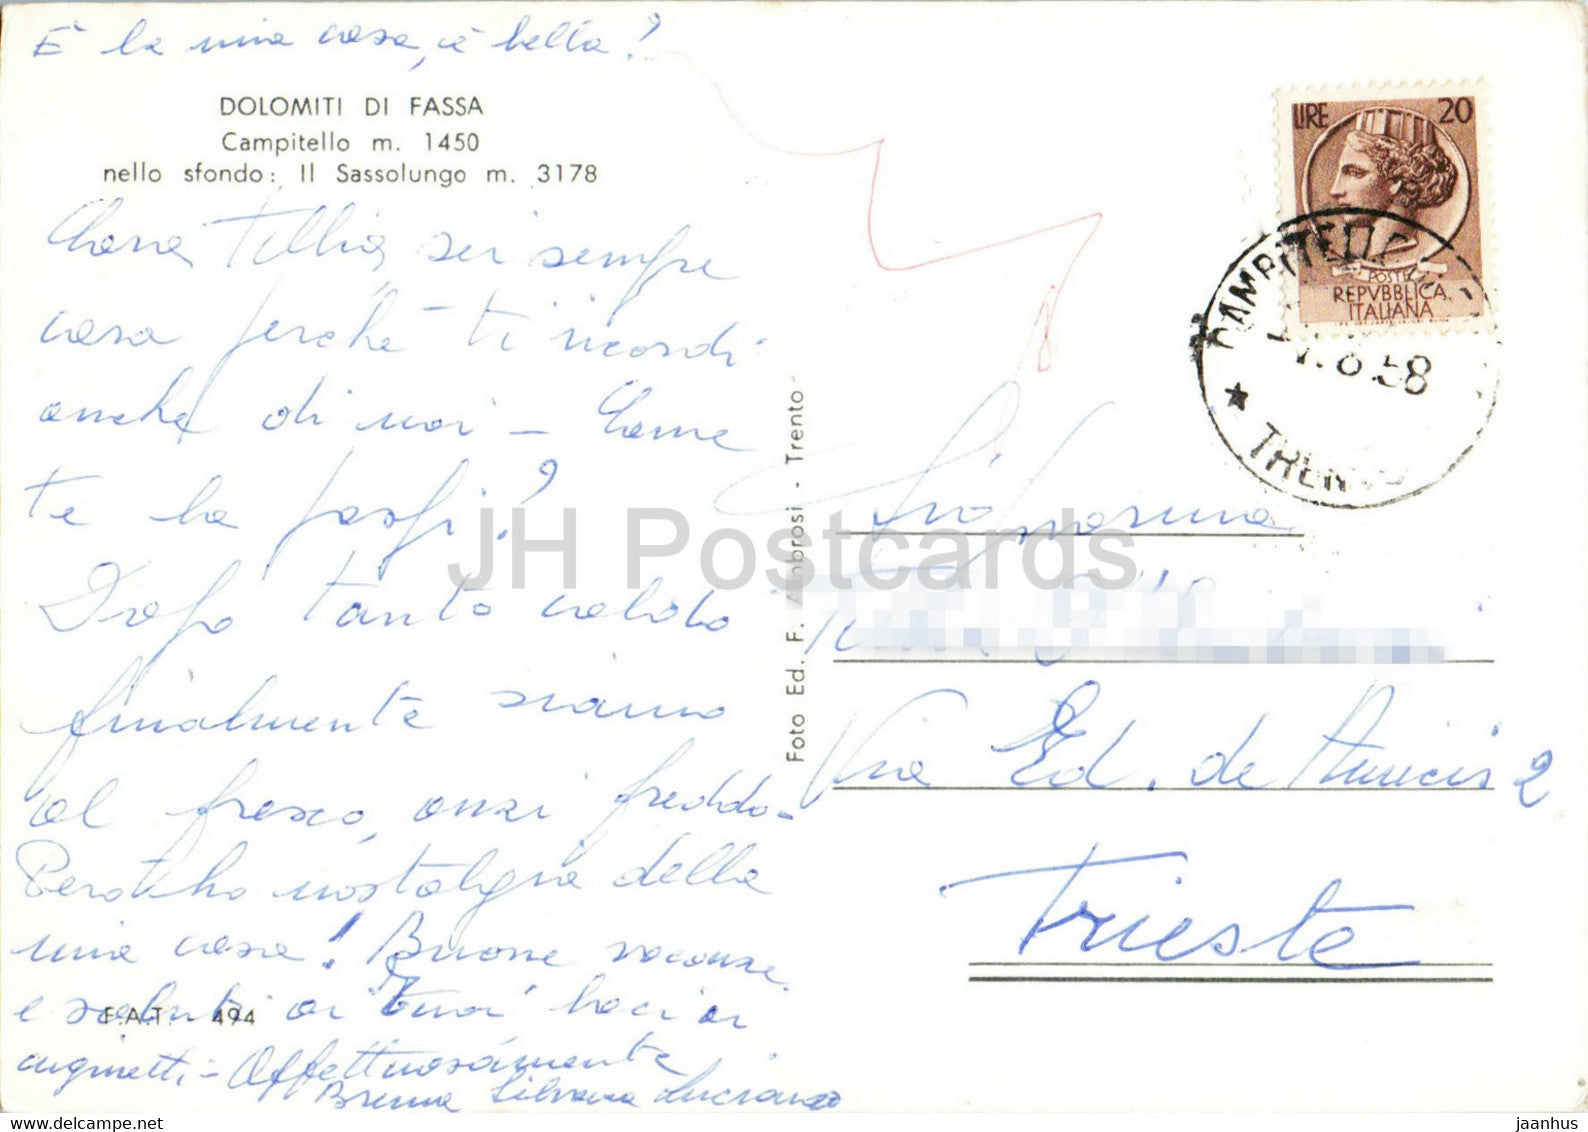 È la mia casa, è bella?
DOLOMITI DI FASSA
Campitello m. 1450
nello sfondo: Il Sassolungo m. 3178
Cara Tullia, sei sempre
cara perchè ti ricordi
anche di noi - Come
te la passi?
Dopo tanto caldo
finalmente siamo
al fresco, anzi freddo -
Però ho nostalgia della
mia casa! Buone vacanze
e saluti ai tuoi baci ai
cuginetti - Affettuosamente
Bruna Silvana Luciano
F.A.T. - 494
Foto Ed. F. Ambrosi - Trento
LIRE 20
POSTE
REPVBBLICA
ITALIANA
CAMPITELLO
8.58
TRENTO
Signorina
Via Ed. de Amicis 2
Trieste
JH Postcards
www.delcampe.net
jaanhus